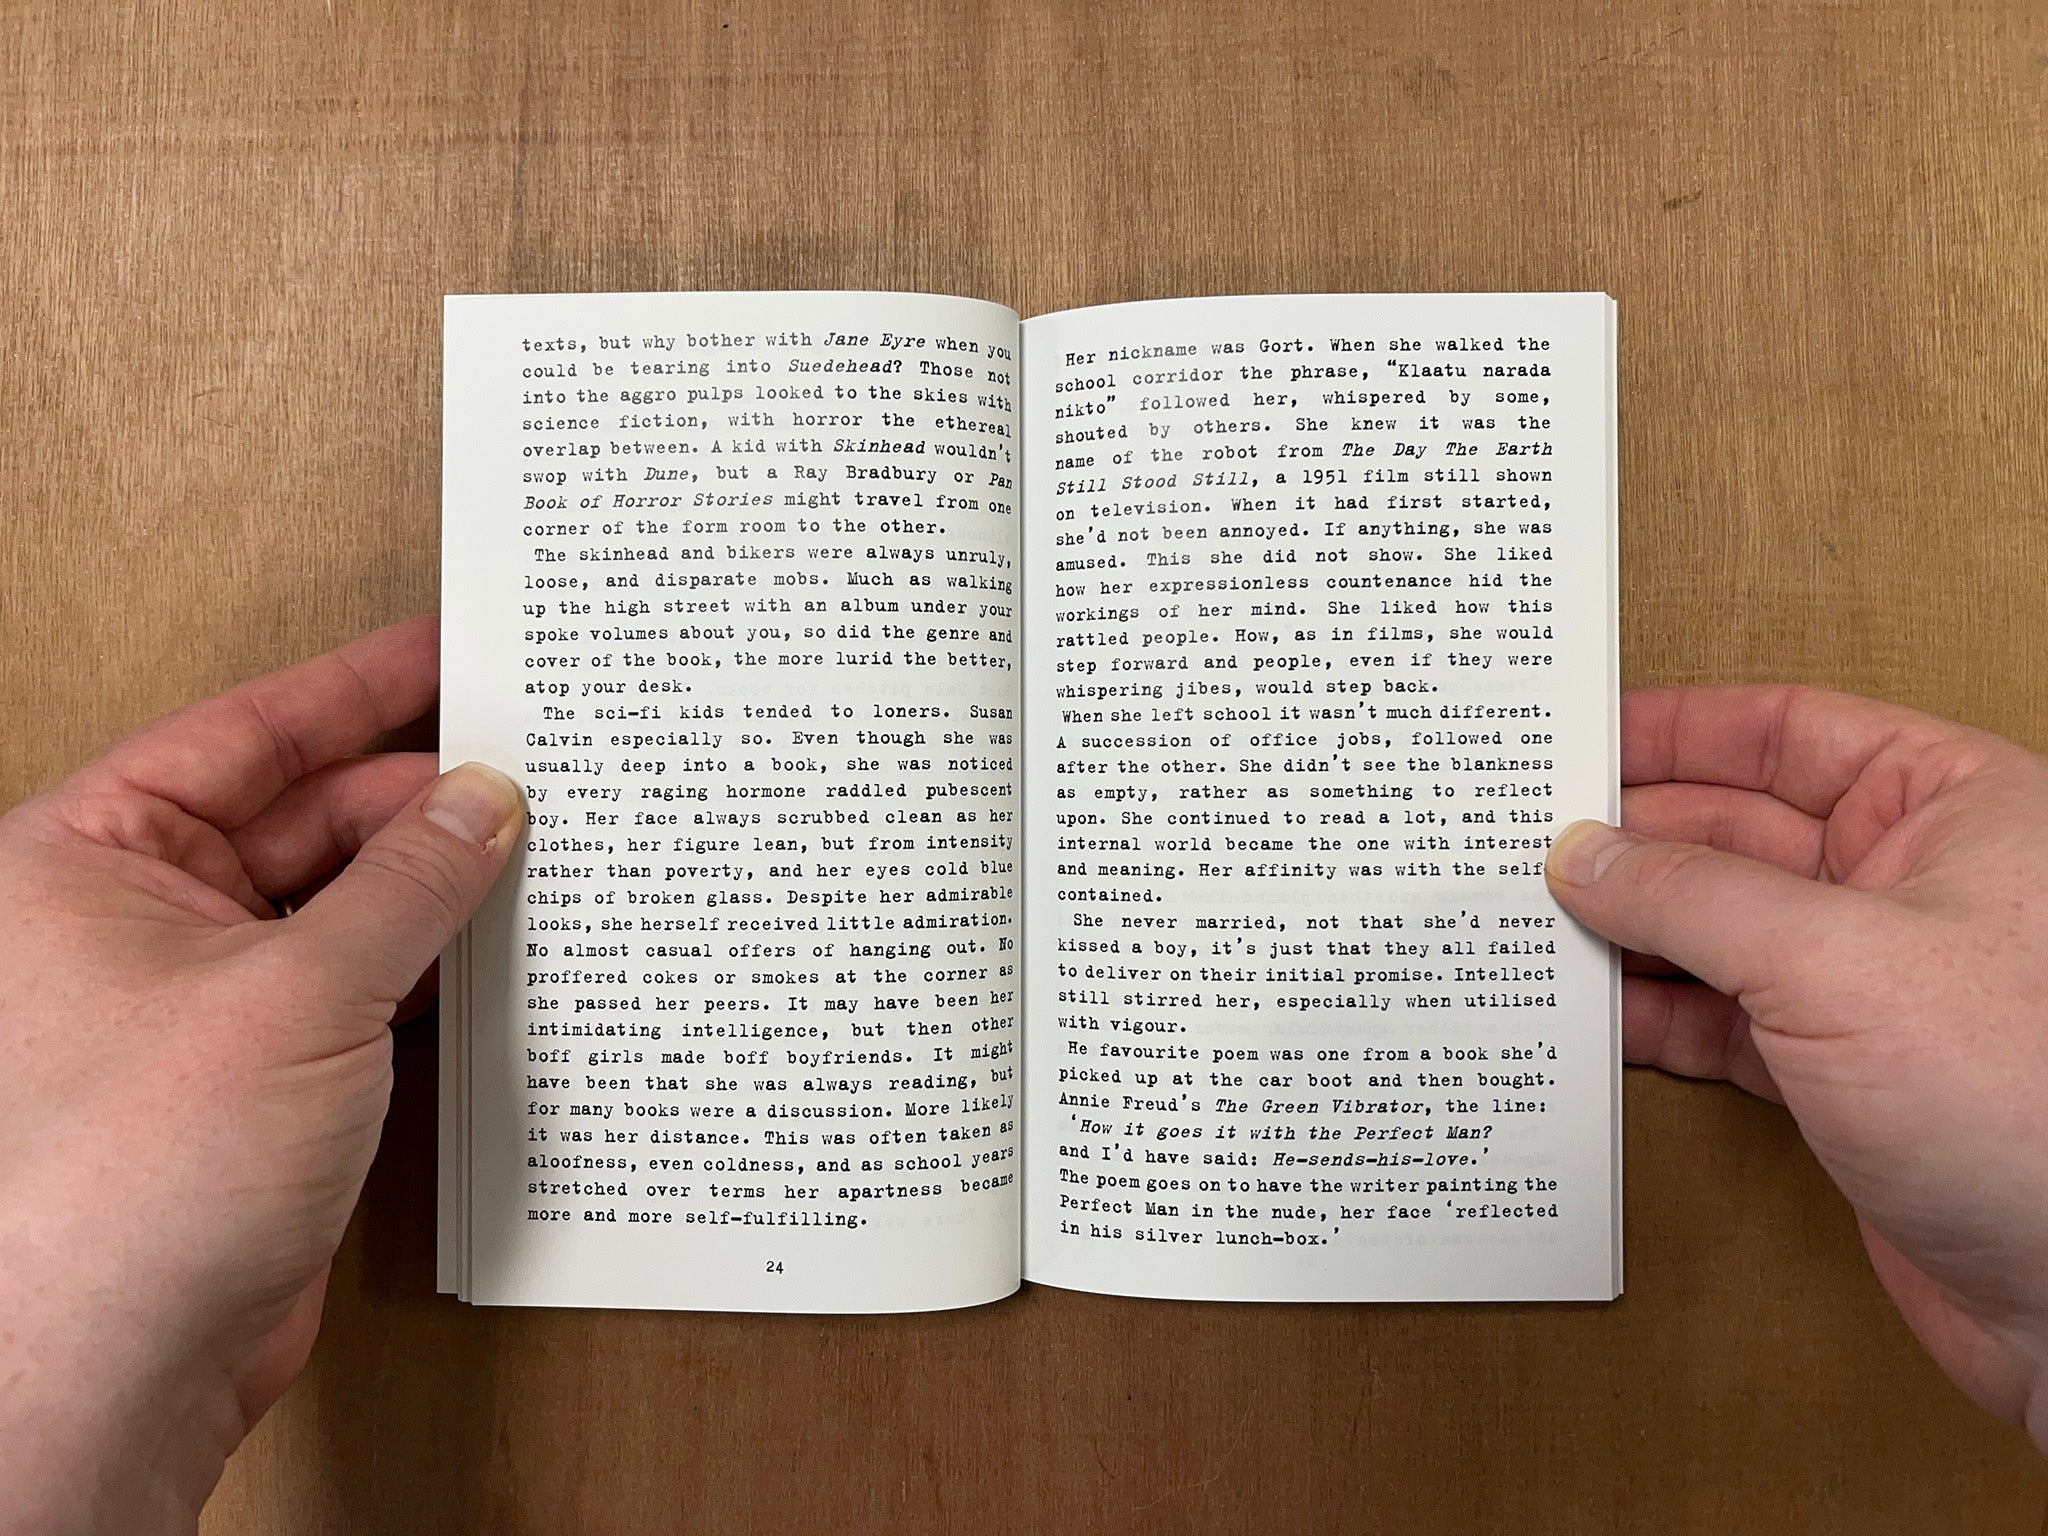 texts, but why bother with Jane Eyre when you
could be tearing into Suedehead? Those not
into the aggro pulps looked to the skies with
science fiction, with horror the ethereal
overlap between. A kid with Skinhead wouldn't
swop with Dune, but a Ray Bradbury or Pan
Book of Horror Stories might travel from one
corner of the form room to the other.
The skinhead and bikers were always unruly,
loose, and disparate mobs. Much as walking
up the high street with an album under your
spoke volumes about you, so did the genre and
cover of the book, the more lurid the better,
atop your desk.
The sci-fi kids tended to loners. Susan
Calvin especially so. Even though she was
usually deep into a book, she was noticed
by every raging hormone raddled pubescent
boy. Her face always scrubbed clean as her
clothes, her figure lean, but from intensity
rather than poverty, and her eyes cold blue
chips of broken glass. Despite her admirable
looks, she herself received little admiration.
No almost casual offers of hanging out. No
proffered cokes or smokes at the corner as
she passed her peers. It may have been her
intimidating intelligence, but then other
boff girls made boff boyfriends. It might
have been that she was always reading, but
for many books were a discussion. More likely
it was her distance. This was often taken as
aloofness, even coldness, and as school years
stretched over terms her apartness became
more and more self-fulfilling.
24
Her nickname was Gort. When she walked the
school corridor the phrase, “Klaatu narada
nikto” followed her, whispered by some,
shouted by others. She knew it was the
name of the robot from The Day The Earth
Still Stood Still, a 1951 film still shown
on television. When it had first started,
she'd not been annoyed. If anything, she was
amused. This she did not show. She liked
how her expressionless countenance hid the
workings of her mind. She liked how this
rattled people. How, as in films, she would
step forward and people, even if they were
whispering jibes, would step back.
When she left school it wasn't much different.
A succession of office jobs, followed one
after the other. She didn't see the blankness
as empty, rather as something to reflect
upon. She continued to read a lot, and this
internal world became the one with interest
and meaning. Her affinity was with the self-
contained.
She never married, not that she'd never
kissed a boy, it's just that they all failed
to deliver on their initial promise. Intellect
still stirred her, especially when utilised
with vigour.
He favourite poem was one from a book she'd
picked up at the car boot and then bought.
Annie Freud's The Green Vibrator, the line:
‘How it goes it with the Perfect Man?
and I'd have said: He-sends-his-love.’
The poem goes on to have the writer painting the
Perfect Man in the nude, her face ‘reflected
in his silver lunch-box.’